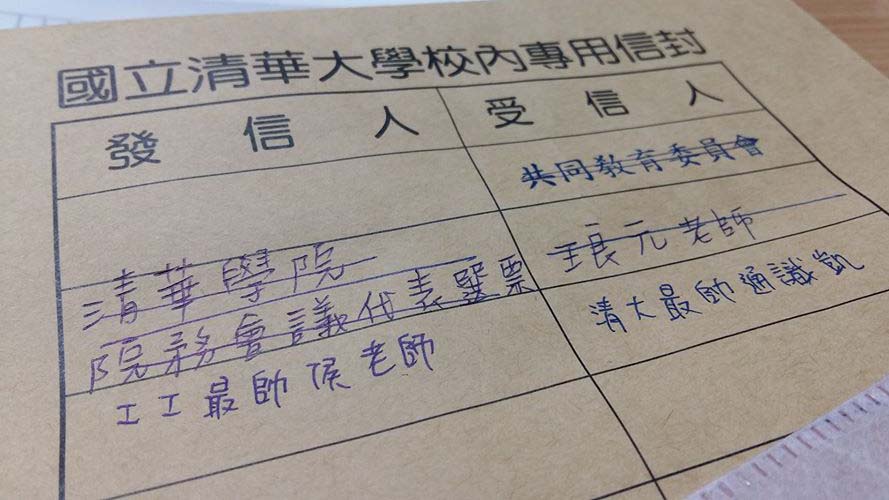 國立清華大學校內專用信封
發信人 受信人
共同教育委員會
清華學院
琅元老師
院務會議代表選票
工工最帥侯老師
清大最帥通識凱